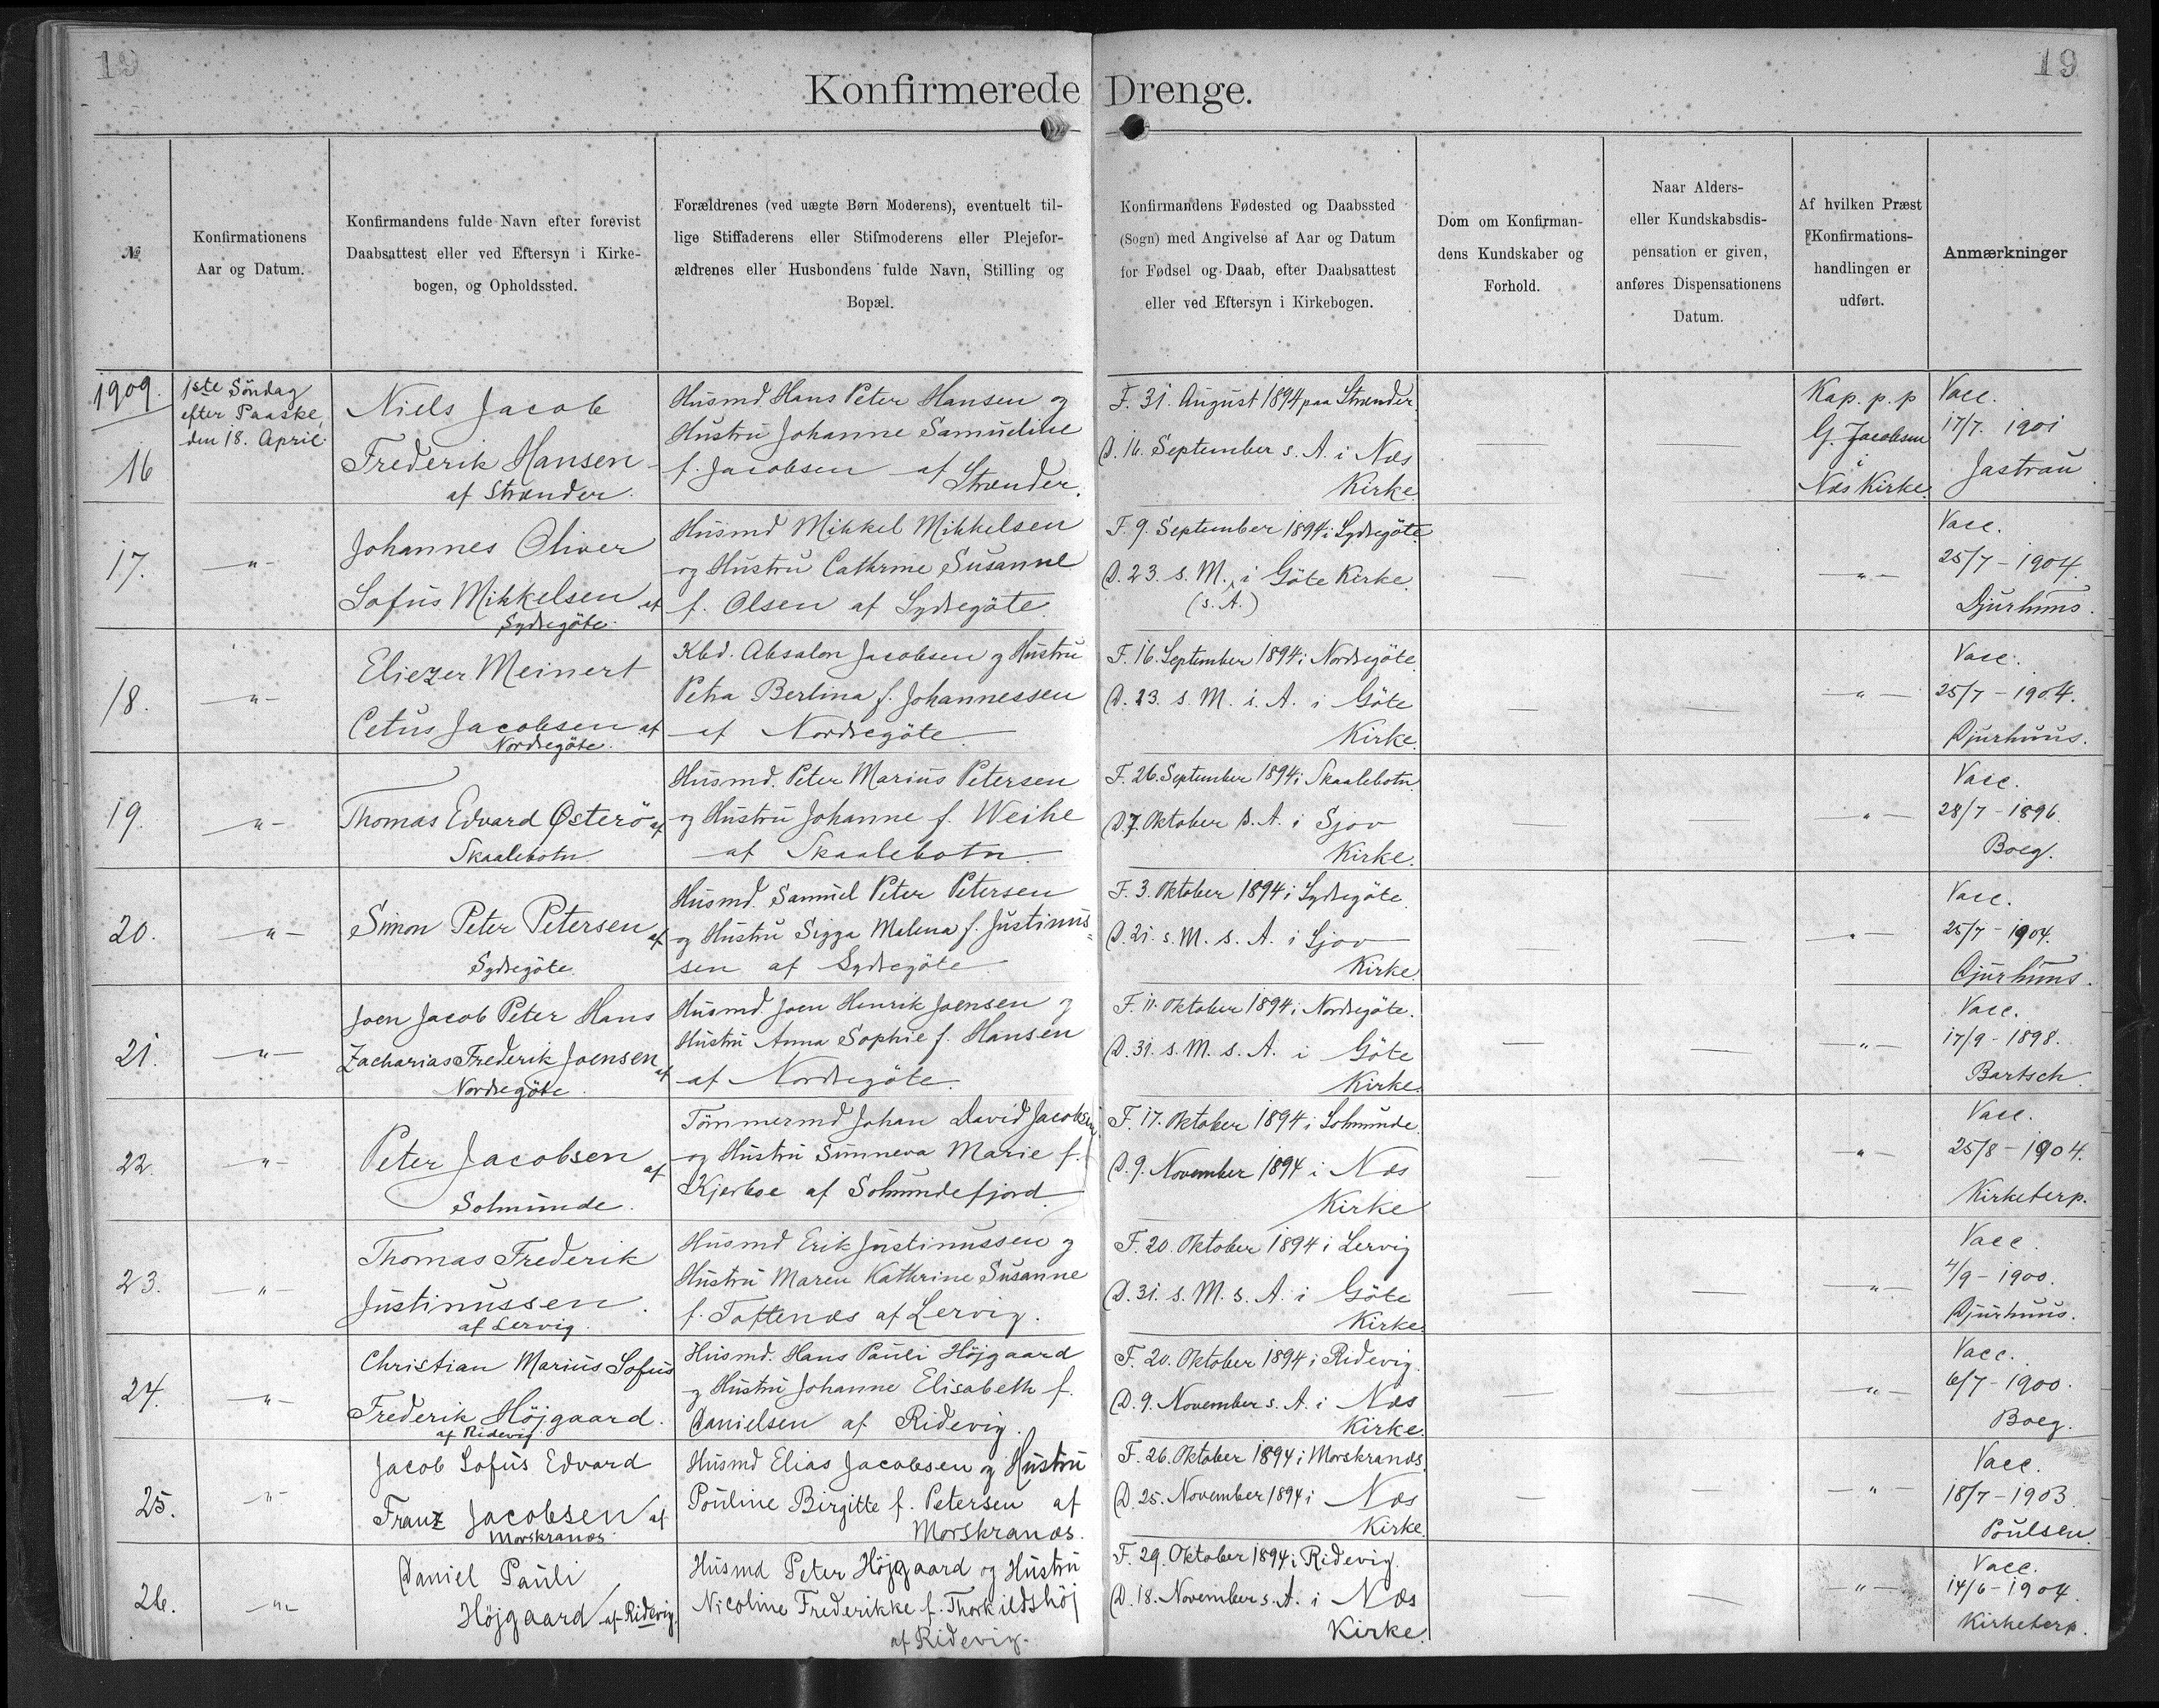 19
19
Konfirmerede Drenge.
№
Konfirmationens
Aar og Datum.
Konfirmandens fulde Navn efter forevist
Daabsattest eller ved Eftersyn i Kirke-
bogen, og Opholdssted.
Forældrenes (ved uægte Børn Moderens), eventuelt til-
lige Stiffaderens eller Stifmoderens eller Plejefor-
ældrenes eller Husbondens fulde Navn, Stilling og
Bopæl.
Konfirmandens Fødested og Daabssted
(Sogn) med Angivelse af Aar og Datum
for Fødsel og Daab, efter Daabsattest
eller ved Eftersyn i Kirkebogen.
Dom om Konfirman-
dens Kundskaber og
Forhold.
Naar Alders-
eller Kundskabsdis-
pensation er given,
anføres Dispensationens
Datum.
Af hvilken Præst
Konfirmations-
handlingen er
udført.
Anmærkninger
1909.
16
1ste Söndag
efter Paaske,
den 18. April.
Niels Jacob
Frederik Hansen
af Strænder.
Husmd. Hans Peter Hansen og
Hustru Johanne Samueline
f. Jacobsen af
Strænder.
F. 31. August 1894 paa Strænder.
D. 16. September s. A. i Næs
Kirke.
—
—
Kap. p. p
G. Jacobsen
i
Næs Kirke.
Vacc.
17/7. 1901
Jastrau
17.
—"—
Johannes Oliver
Sofus Mikkelsen af
Sydregöte.
Husmd Mikkel Mikkelsen
og Hustru Cathrine Susanne
f. Olsen af Sydregöte.
F. 9. September 1894 i Sydregöte.
D. 23. s. M. i Göte Kirke.
(s. A.)
—
—
—"—
Vacc.
25/7 - 1904.
Djurhuus.
18.
—"—
Eliezer Meinert
Cetus Jacobsen af
Nordregöte.
Kbd. Absalon Jacobsen og Hustru
Petra Berlina f. Johannessen
af Nordregöte.
F. 16. September 1894 i Nordregöte.
D. 23. s. M. s. A. i Göte
Kirke.
—
—
—"—
Vacc.
25/7 - 1904.
Djurhuus.
19.
—"—
Thomas Edvard Østerö af
Skaalebotn.
Husmd. Peter Marius Petersen
og Hustru Johanne f. Weihe
af Skaalebotn.
F. 26. September 1894 i Skaalebotn.
D. 7. Oktober s. A. i Sjov
Kirke.
—
—
—"—
Vacc.
28/7 - 1896.
Boeg.
20.
—"—
Simon Peter Petersen af
Sydregöte.
Husmd. Samuel Peter Petersen
og Hustru Sigga Malena f. Justinus=
sen af Sydregöte.
F. 3. Oktober 1894 i Sydregöte.
D. 21. s. M. s. A. i Sjov
Kirke.
—
—
—"—
Vacc.
25/7 - 1904.
Djurhuus.
21.
—"—
Joen Jacob Peter Hans
Zacharias Frederik Joensen af
Nordregöte.
Husmd. Joen Henrik Joensen og
Hustru Anna Sophie f. Hansen
af Nordregöte.
F. 11. Oktober 1894 i Nordregöte.
D. 31. s. M. s. A. i Göte
Kirke.
—
—
—"—
Vacc.
17/9 - 1898.
Bartsch.
22.
—"—
Peter Jacobsen af
Solmunde.
Tömmermd Johan David Jacobsen
og Hustru Sunneva Marie f.
Kjerboe af Solmundefjord.
F. 17. Oktober 1894 i Solmunde.
D. 9. November 1894 i Næs
Kirke
—
—
—"—
Vacc.
25/8 - 1904.
Kirketerp.
23.
—"—
Thomas Frederik
Justinussen.
af Lervig.
Husmd Erik Justinussen og
Hustru Maren Kathrine Susanne
f. Toftenæs af Lervig.
F. 20. Oktober 1894 i Lervig
D. 31. s. M. s. A. i Göte
Kirke.
—
—
—"—
Vacc.
4/9 - 1900.
Djurhuus.
24.
—"—
Christian Marius Sofus
Frederik Höjgaard.
af Ridevig.
Husmd. Hans Pauli Höjgaard
og Hustru Johanne Elisabeth f.
Danielsen af Ridevig.
F. 20. Oktober 1894 i Ridevig.
D. 9. November s. A. i Næs
Kirke.
—
—
—"—
Vacc.
6/7 - 1900.
Boeg.
25.
—"—
Jacob Sofus Edvard
Franz Jacobsen af
Morskranæs
Husmd Elias Jacobsen og Hustru
Pouline Birgitte f. Petersen af
Morskranæs.
F. 26. Oktober 1894 i Morskranæs.
D. 25. November 1894 i Næs
Kirke.
—
—
—"—
Vacc.
18/7 - 1903.
Poulsen.
26.
—"—
Daniel Pauli
Höjgaard af Ridevig.
Husmd Peter Höjgaard og Hustru
Nicoline Frederikke f. Thorkildshöj
af Ridevig.
F. 29. Oktober 1894 i Ridevig.
D. 18. November s. A. i Næs
Kirke.
—
—
—"—
Vacc.
14/6 - 1904.
Kirketerp.